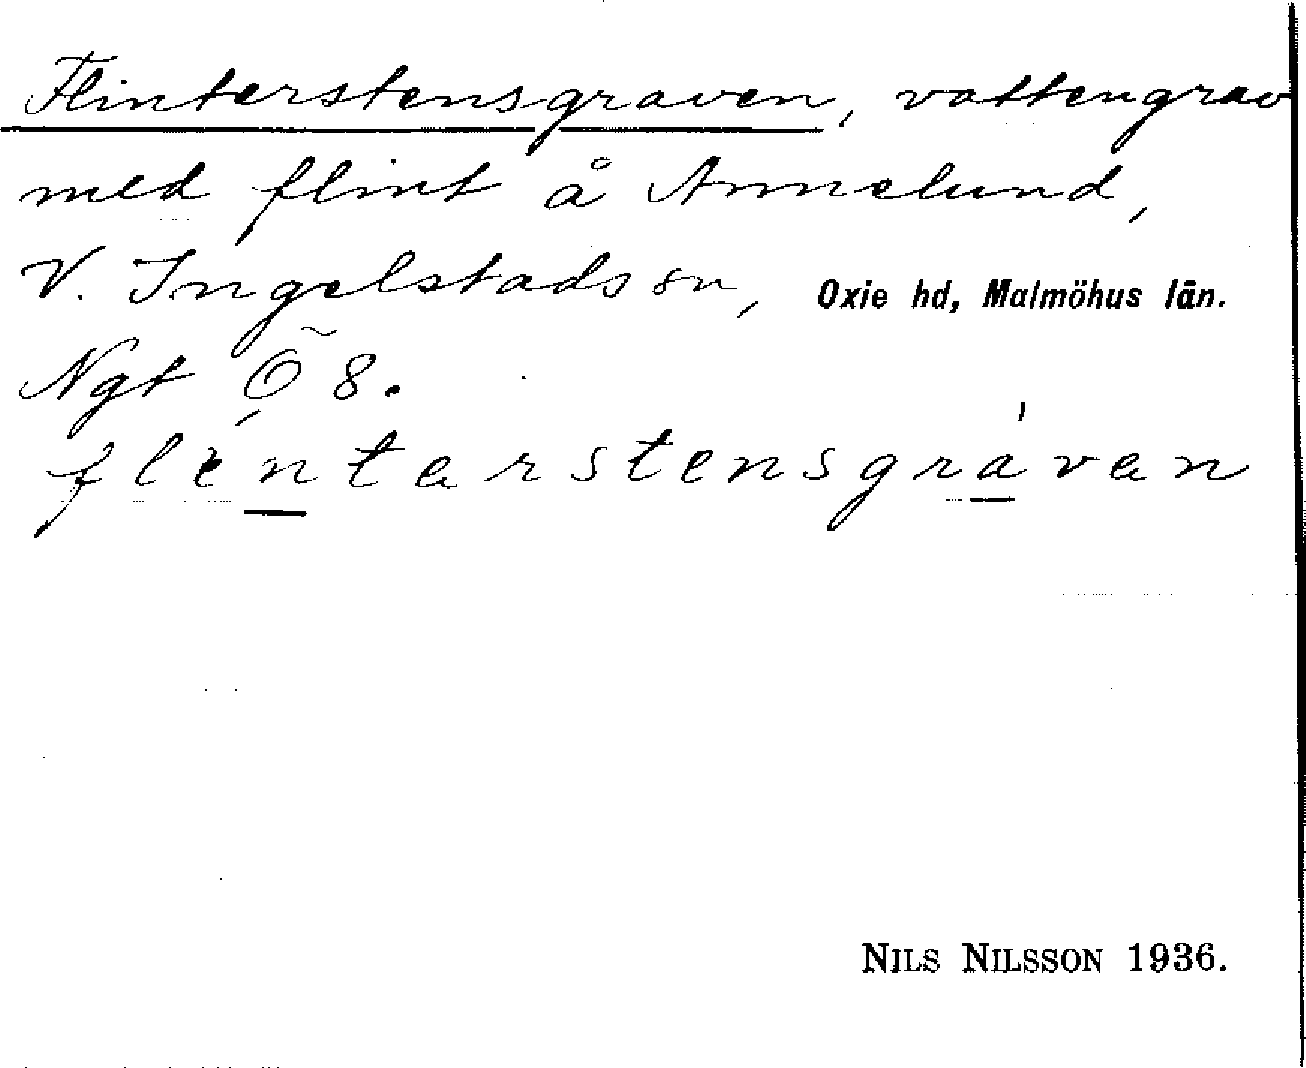 Flinterstensgraven, vattengrav
med flint å Annelund,
V. Ingelstads sn, Oxie hd, Malmöhus län.
Ngt Ö 8.
flentarstensgravan
NILS NILSSON 1936.